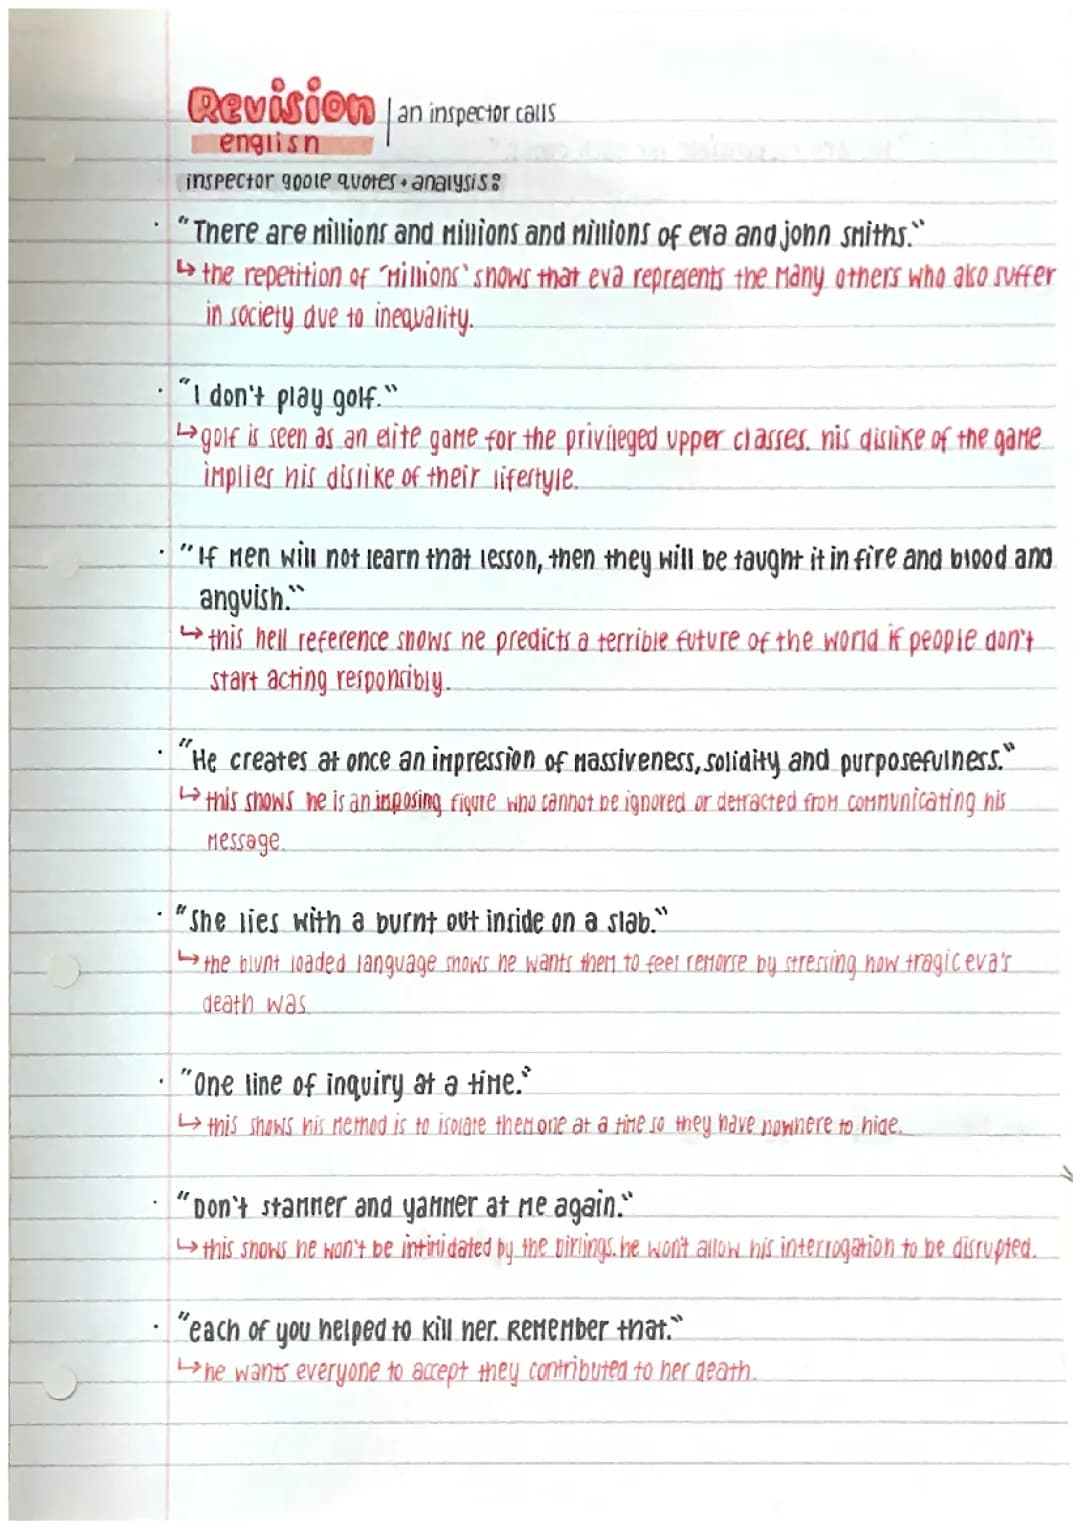 Revision | an inspector calls
english
inspector goole quotes + analysis:
· "There are millions and millions and millions of eva and john smiths."
↳ the repetition of 'millions' shows that eva represents the many others who also suffer
in society due to inequality.
· "I don't play golf."
↳ golf is seen as an elite game for the privileged upper classes. his dislike of the game
implies his dislike of their lifestyle.
· "If men will not learn that lesson, then they will be taught it in fire and blood and
anguish."
↳ this hell reference shows he predicts a terrible future of the world if people don't
start acting responsibly.
· "He creates at once an impression of massiveness, solidity and purposefulness."
↳ this shows he is an imposing figure who cannot be ignored or detracted from communicating his
message.
· "She lies with a burnt out inside on a slab."
↳ the blunt loaded language shows he wants them to feel remorse by stressing how tragic eva's
death was.
· "One line of inquiry at a time."
↳ this shows his method is to isolate them one at a time so they have nowhere to hide.
· "Don't stammer and yammer at me again."
↳ this shows he won't be intimidated by the birlings. he won't allow his interrogation to be disrupted.
· "each of you helped to kill her. Remember that."
↳ he wants everyone to accept they contributed to her death.